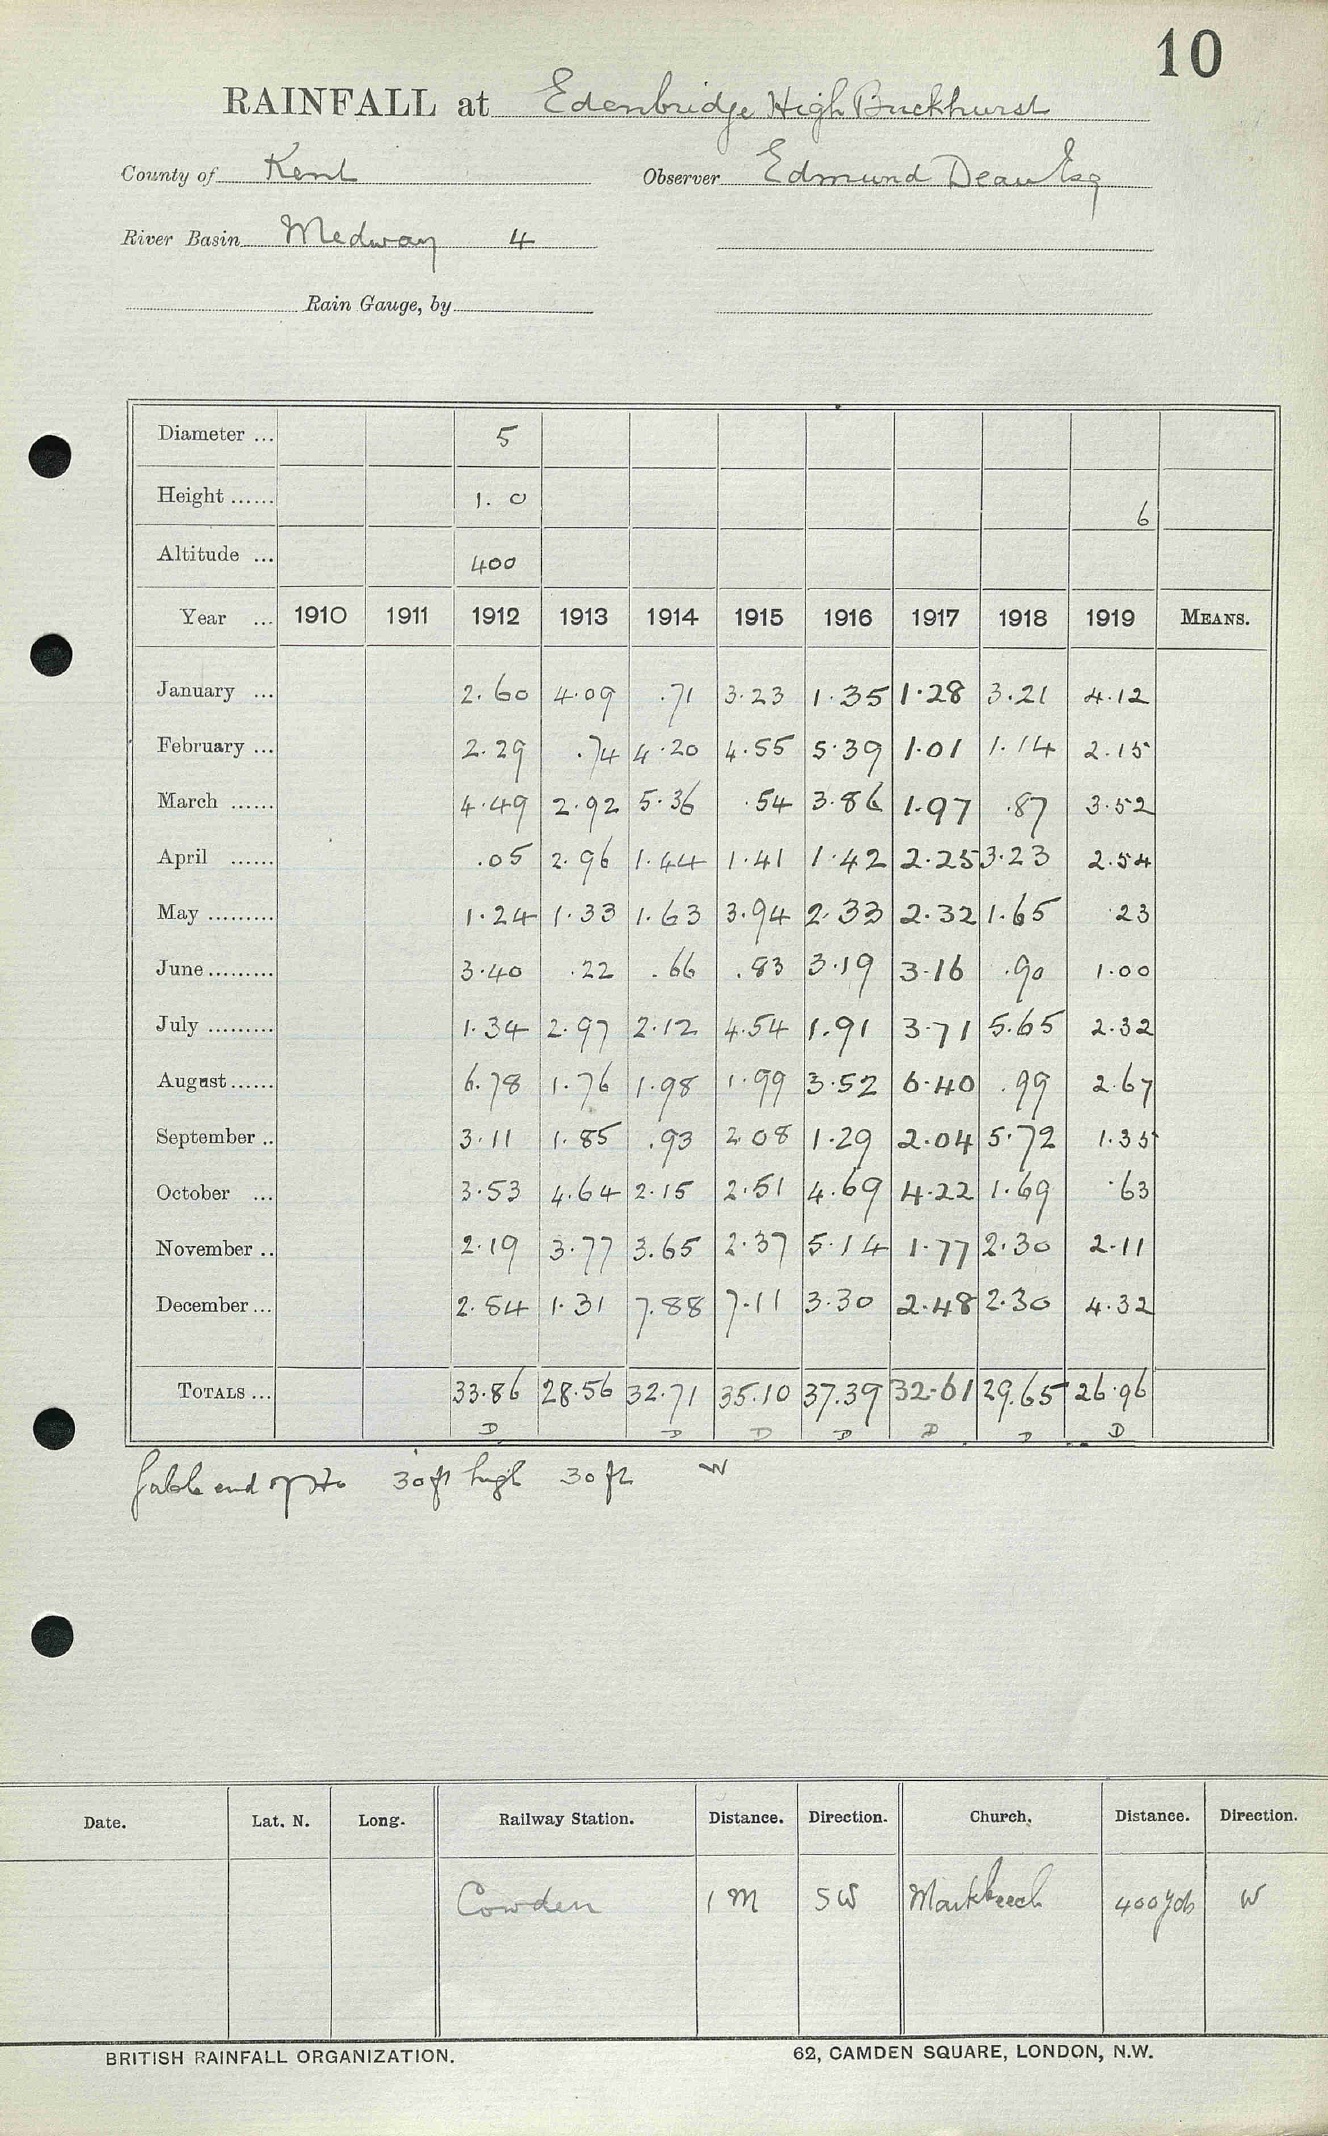 10
RAINFALL at Edenbridge High Buckhurst
County of Kent Observer Edmund Dean Esq
River Basin Medway 4
Rain Gauge, by
Diameter ... 5
Height ...... 1.0 6
Altitude ... 400
Year ... 1910 1911 1912 1913 1914 1915 1916 1917 1918 1919 MEANS.
January ... 2.60 4.09 .71 3.23 1.35 1.28 3.21 4.12
February ... 2.29 .74 4.20 4.55 5.39 1.01 1.14 2.15
March ...... 4.49 2.92 5.36 .54 3.86 1.97 .87 3.52
April ...... .05 2.96 1.44 1.41 1.42 2.25 3.23 2.54
May ......... 1.24 1.33 1.63 3.94 2.33 2.32 1.65 .23
June ......... 3.40 .22 .66 .83 3.19 3.16 .90 1.00
July ......... 1.34 2.97 2.12 4.54 1.91 3.71 5.65 2.32
August ...... 6.78 1.76 1.98 1.99 3.52 6.40 .99 2.67
September .. 3.11 1.85 .93 2.08 1.29 2.04 5.72 1.35
October ... 3.53 4.64 2.15 2.51 4.69 4.22 1.69 .63
November .. 2.19 3.77 3.65 2.37 5.14 1.77 2.30 2.11
December ... 2.84 1.31 7.88 7.11 3.30 2.48 2.30 4.32
TOTALS ... 33.86 28.56 32.71 35.10 37.39 32.61 29.65 26.96
D D D D D D D
Gable end of Ho 30ft high 30ft W
Date. Lat. N. Long. Railway Station. Distance. Direction. Church. Distance. Direction.
Cowden 1 M SW Markbeech 400 yds W
BRITISH RAINFALL ORGANIZATION. 62, CAMDEN SQUARE, LONDON, N.W.